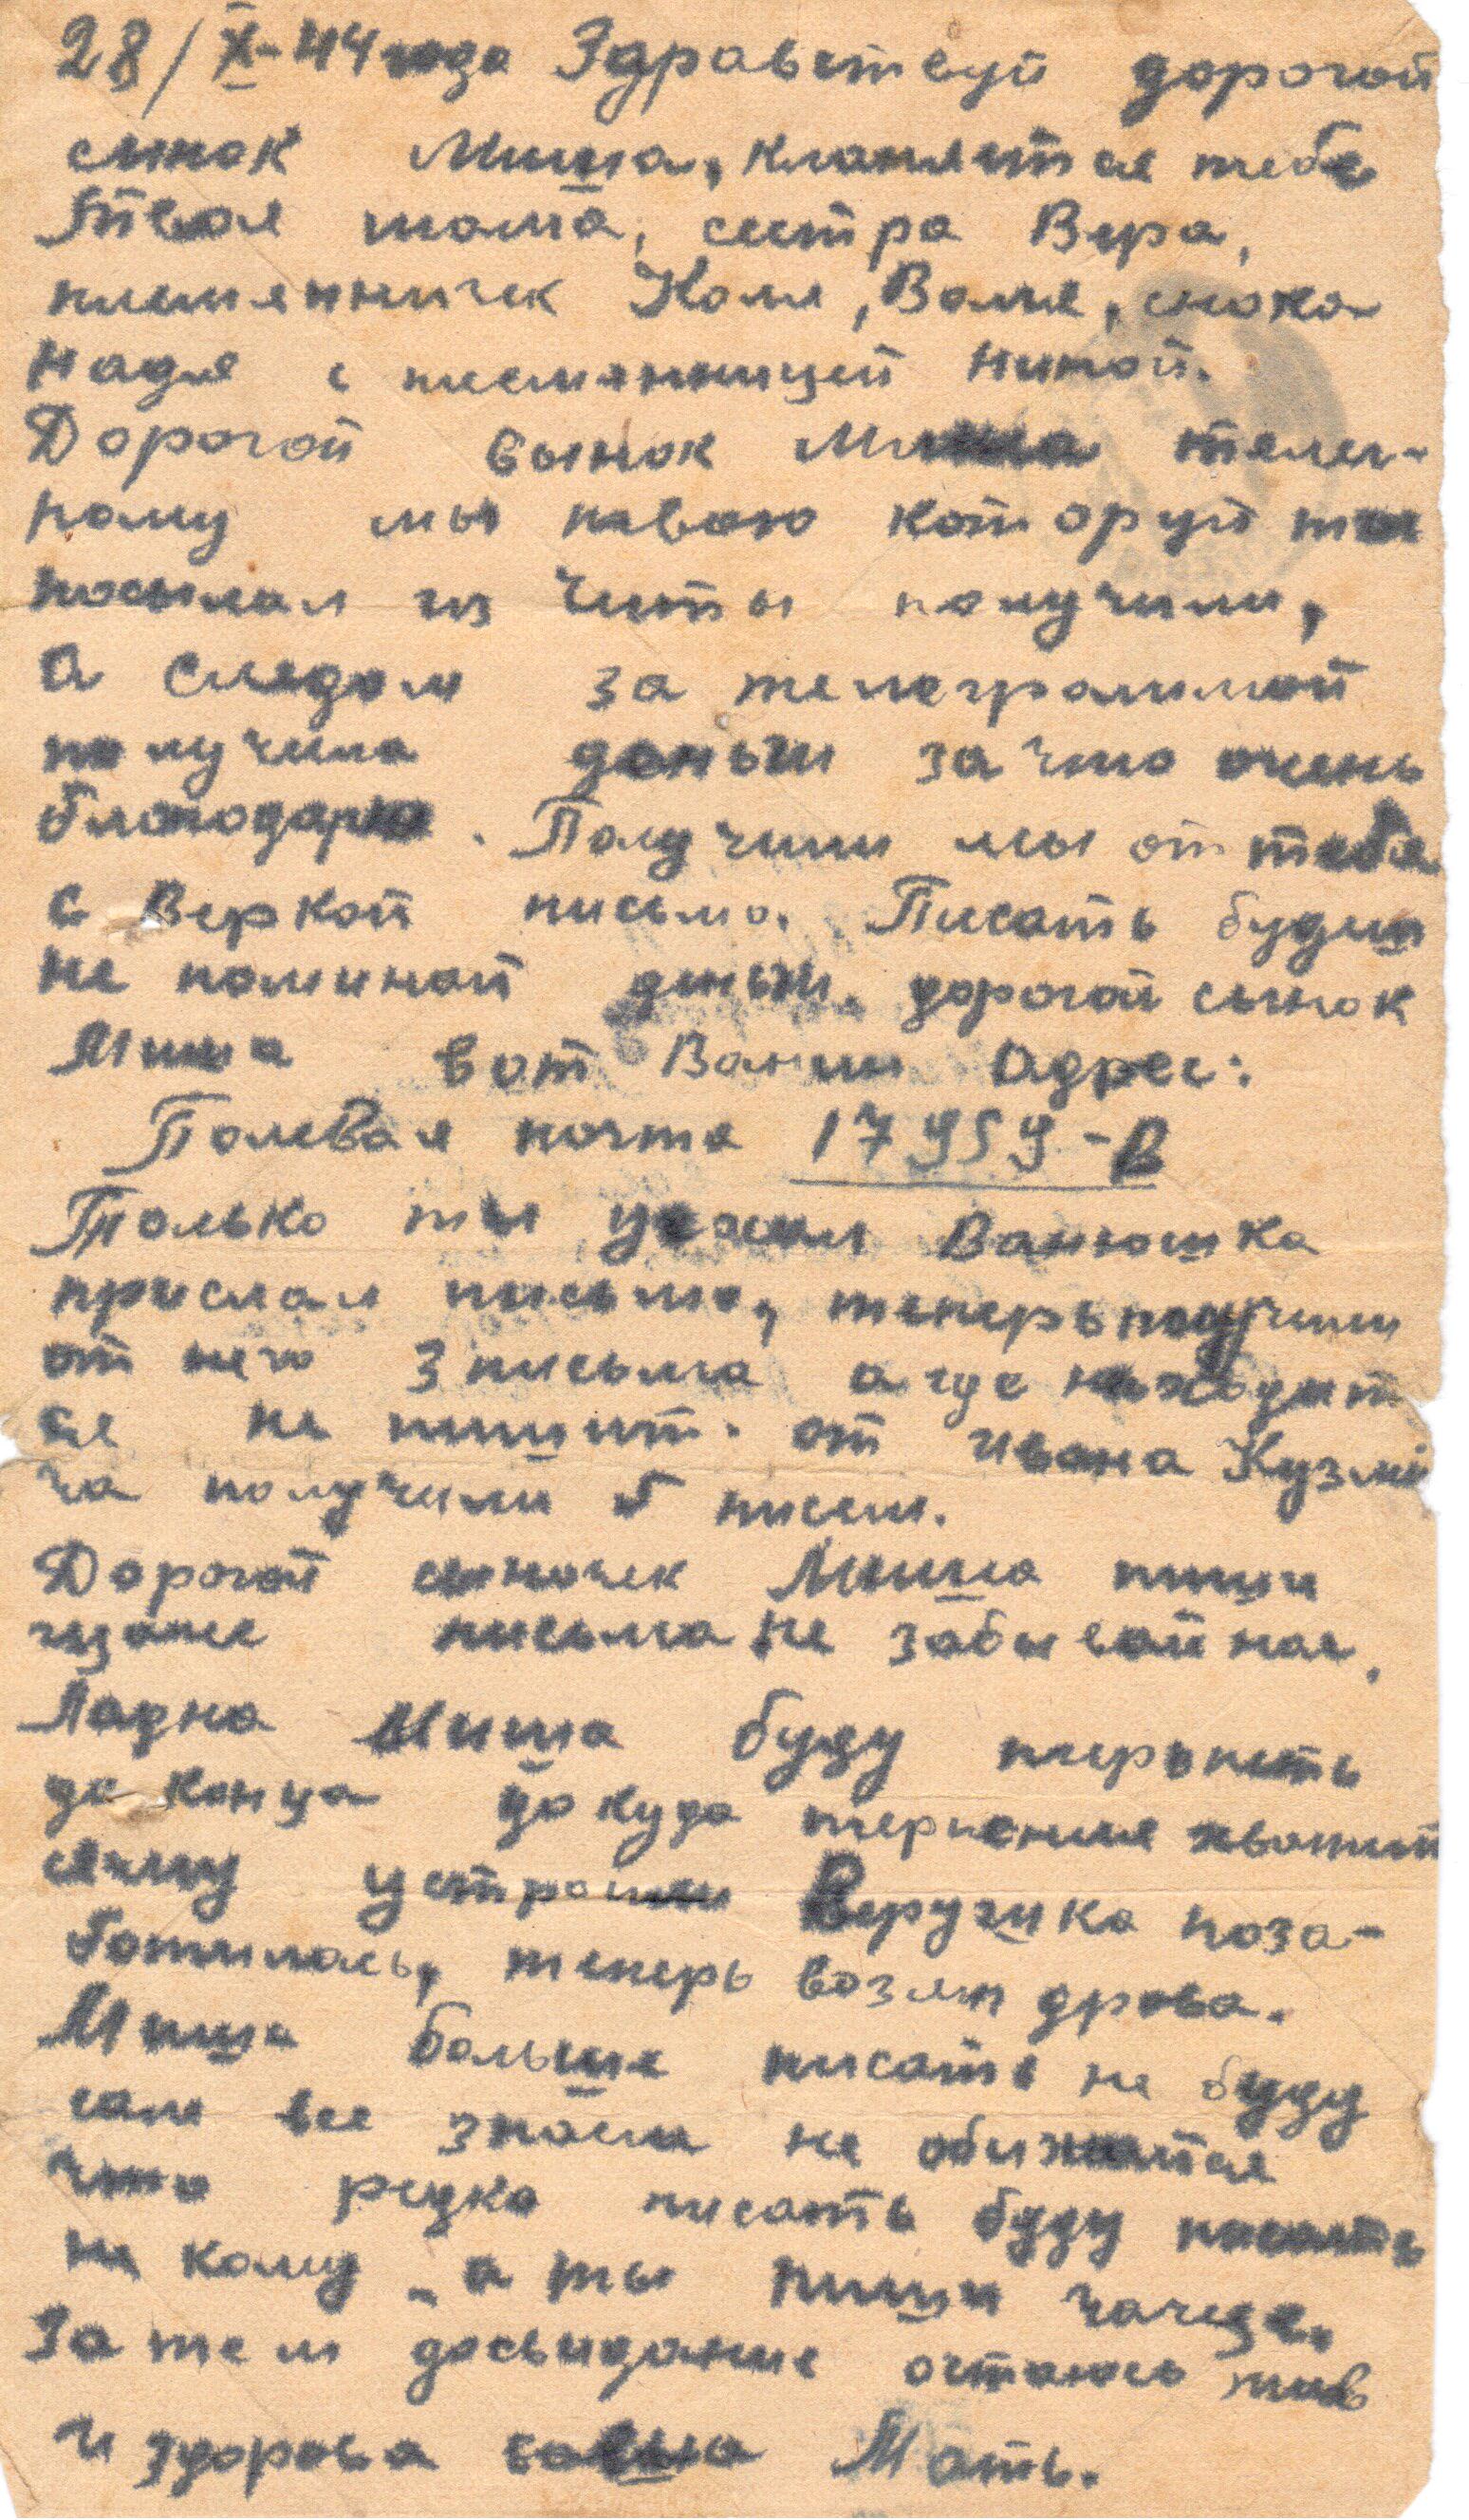 28/X-44 года Здравствуй дорогой
сынок Миша, кланяется тебе
Твоя мама, сестра Вера,
племянничек Коля, Валя, сноха
Надя с племянницей Ниной.
Дорогой сынок Миша телег-
раму мы твою которуй ты
посылал из Читы получили,
а следом за телеграммой
получила деньги за что очень
благодарю. Получили мы от тебя
с Веркой письмо. Писать будиш
не поминай деньги. дорогой сынок
Миша вот Ванин адрес:
Полевая почта 17959-В
Только ты уехал Ванюшка
прислал письмо, теперь получили
от него 3 письма а где находит
ся не пишит. от Ивана Кузми
ча получили 5 писем.
Дорогой сыночек Миша пиши
чаще письма не забывай нас,
Ладно Миша буду терьпеть
до конца докуда терпения хватит
сяму устроили Верушка поза-
ботилась, теперь возят дрова.
Миша больше писать не буду
сам все знаеш не обижайся
что редко писать буду писать
не кому - а ты пиши чаще.
Затем досвидание остаюсь жив
и здорова ваша Мать.